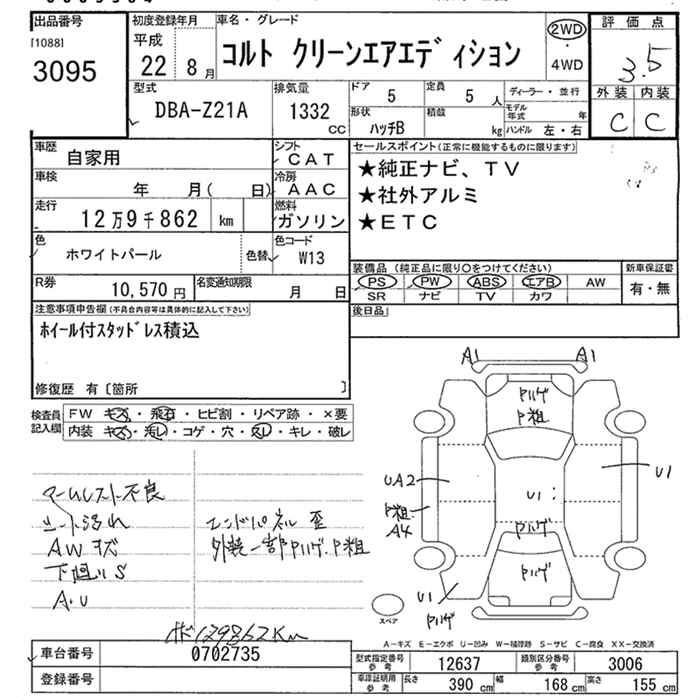 出品番号
[1088]
3095
初度登録年月
平成
22 8月
車名・グレード
コルト クリーンエアエディション
2WD
・
4WD
評価点
3.5
外装 内装
C C
型式
DBA-Z21A
排気量
1332
CC
ドア 5
定員 5 人
ディーラー・並行
形状 ハッチB
積載 kg
モデル年式 年
ハンドル 左・右
車歴
自家用
シフト
CAT
車検
年 月( 日)
冷房
AAC
走行
12万9千862 km
燃料
ガソリン
色
ホワイトパール
色替
色コード
W13
R券
10,570円
名変通知期限
月 日
セールスポイント(正常に機能するものに限ります)
★純正ナビ、TV
★社外アルミ
★ETC
装備品(純正品に限り○をつけてください)
新車保証書
PS PW ABS エアB AW
SR ナビ TV カワ
有・無
後日品
注意事項申告欄(不具合内容等は具体的に記入して下さい)
ホイール付スタッドレス積込
修復歴 有〔箇所 〕
検査員記入欄
FW キズ・飛石・ヒビ割・リペア跡・×要
内装 キズ・汚レ・コゲ・穴・スレ・キレ・破レ
アームレスト不良
シート汚れ
AWキズ
下廻りS
A.U
エンドパネル歪
外装一部Pハゲ.P粗
メーター129862Km
A1 A1
Pハゲ
P粗
UA2
U1
U1
P粗
A4
Pハゲ
Pハゲ
U1
Pハゲ
スペア
A-キズ E-エクボ U-凹み W-補修跡 S-サビ C-腐食 XX-交換済
車台番号
0702735
登録番号
型式指定番号 参考
12637
類別区分番号 参考
3006
車庫証明用 参考
長さ 390cm
幅 168cm
高さ 155cm